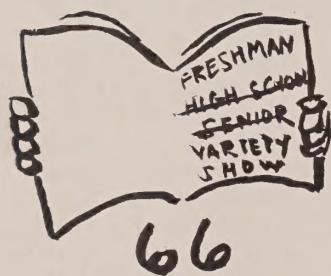 FRESHMAN
HIGH SCHOOL
SENIOR
VARIETY
SHOW
66